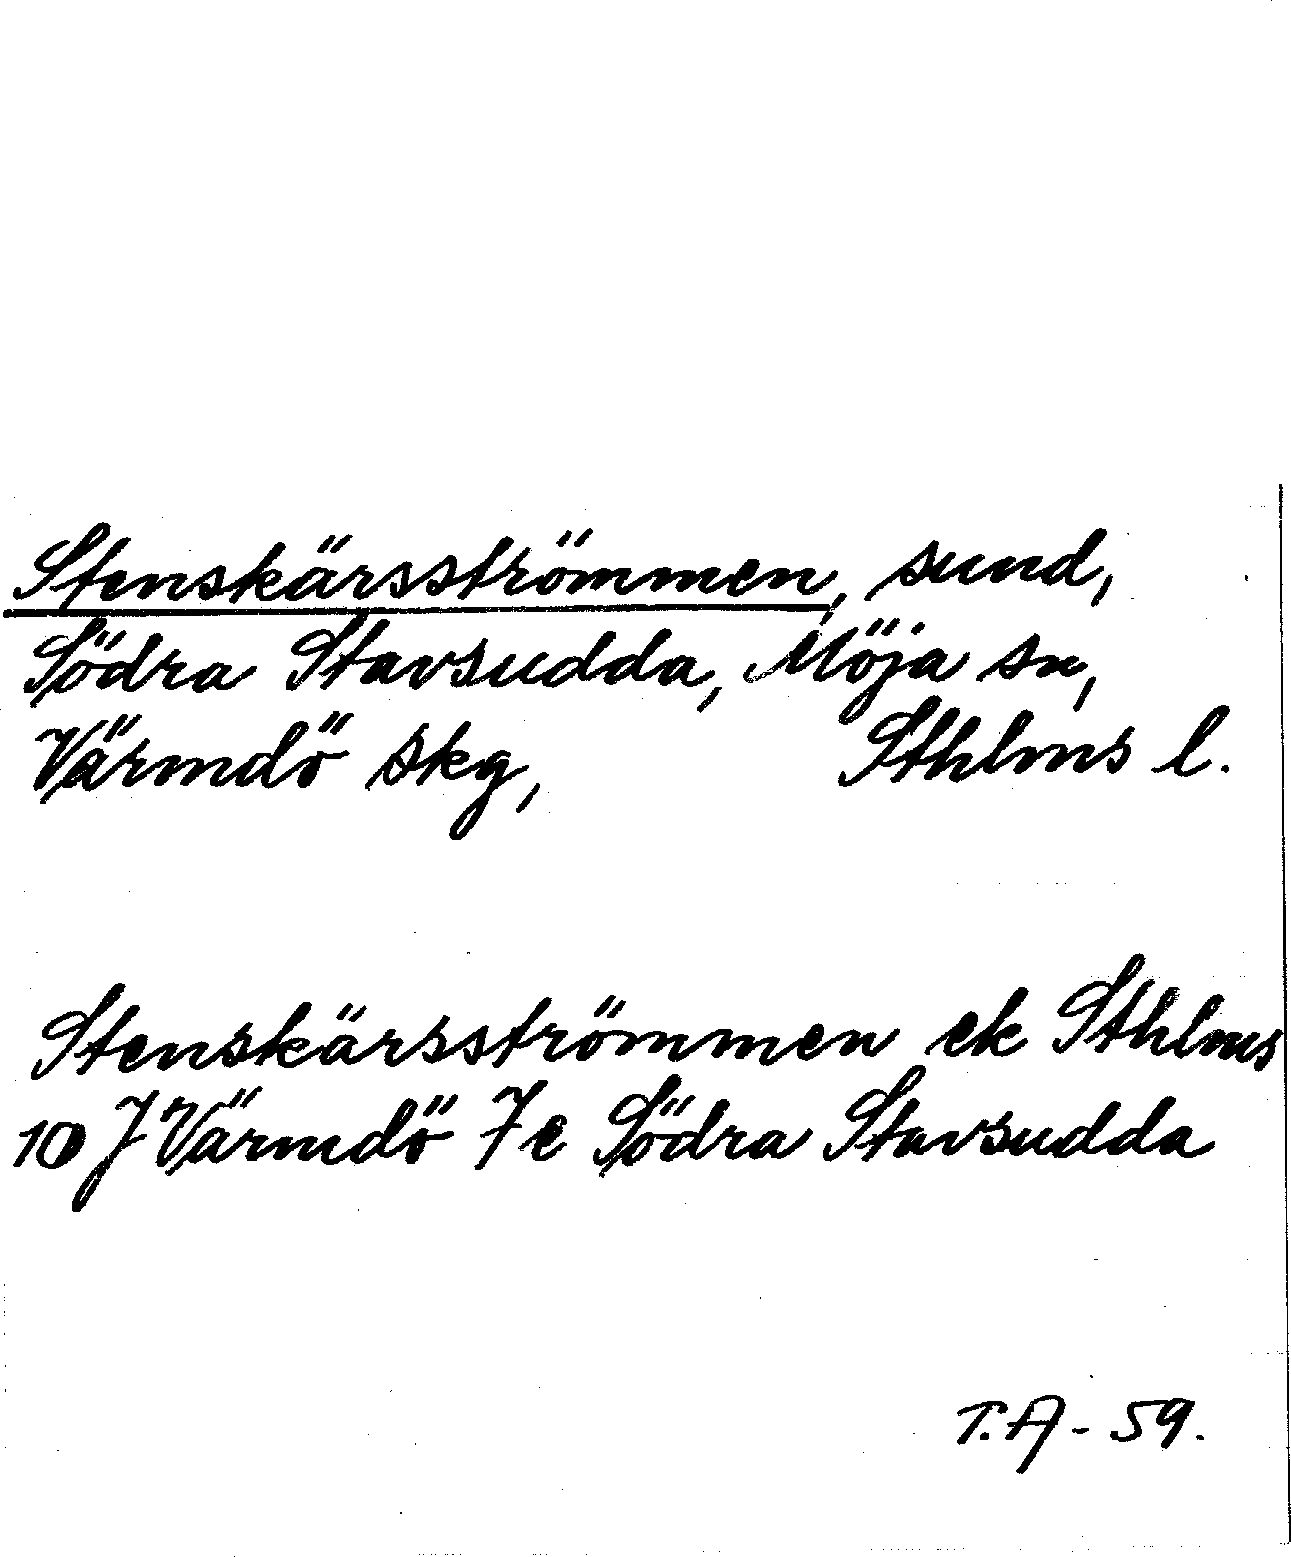 Stenskärsströmmen, sund,
Södra Stavsudda, Möja sn,
Värmdö skg, Sthlms l.
Stenskärsströmmen ek Sthlms
10 J Värmdö 7e Södra Stavsudda
T.A - 59.